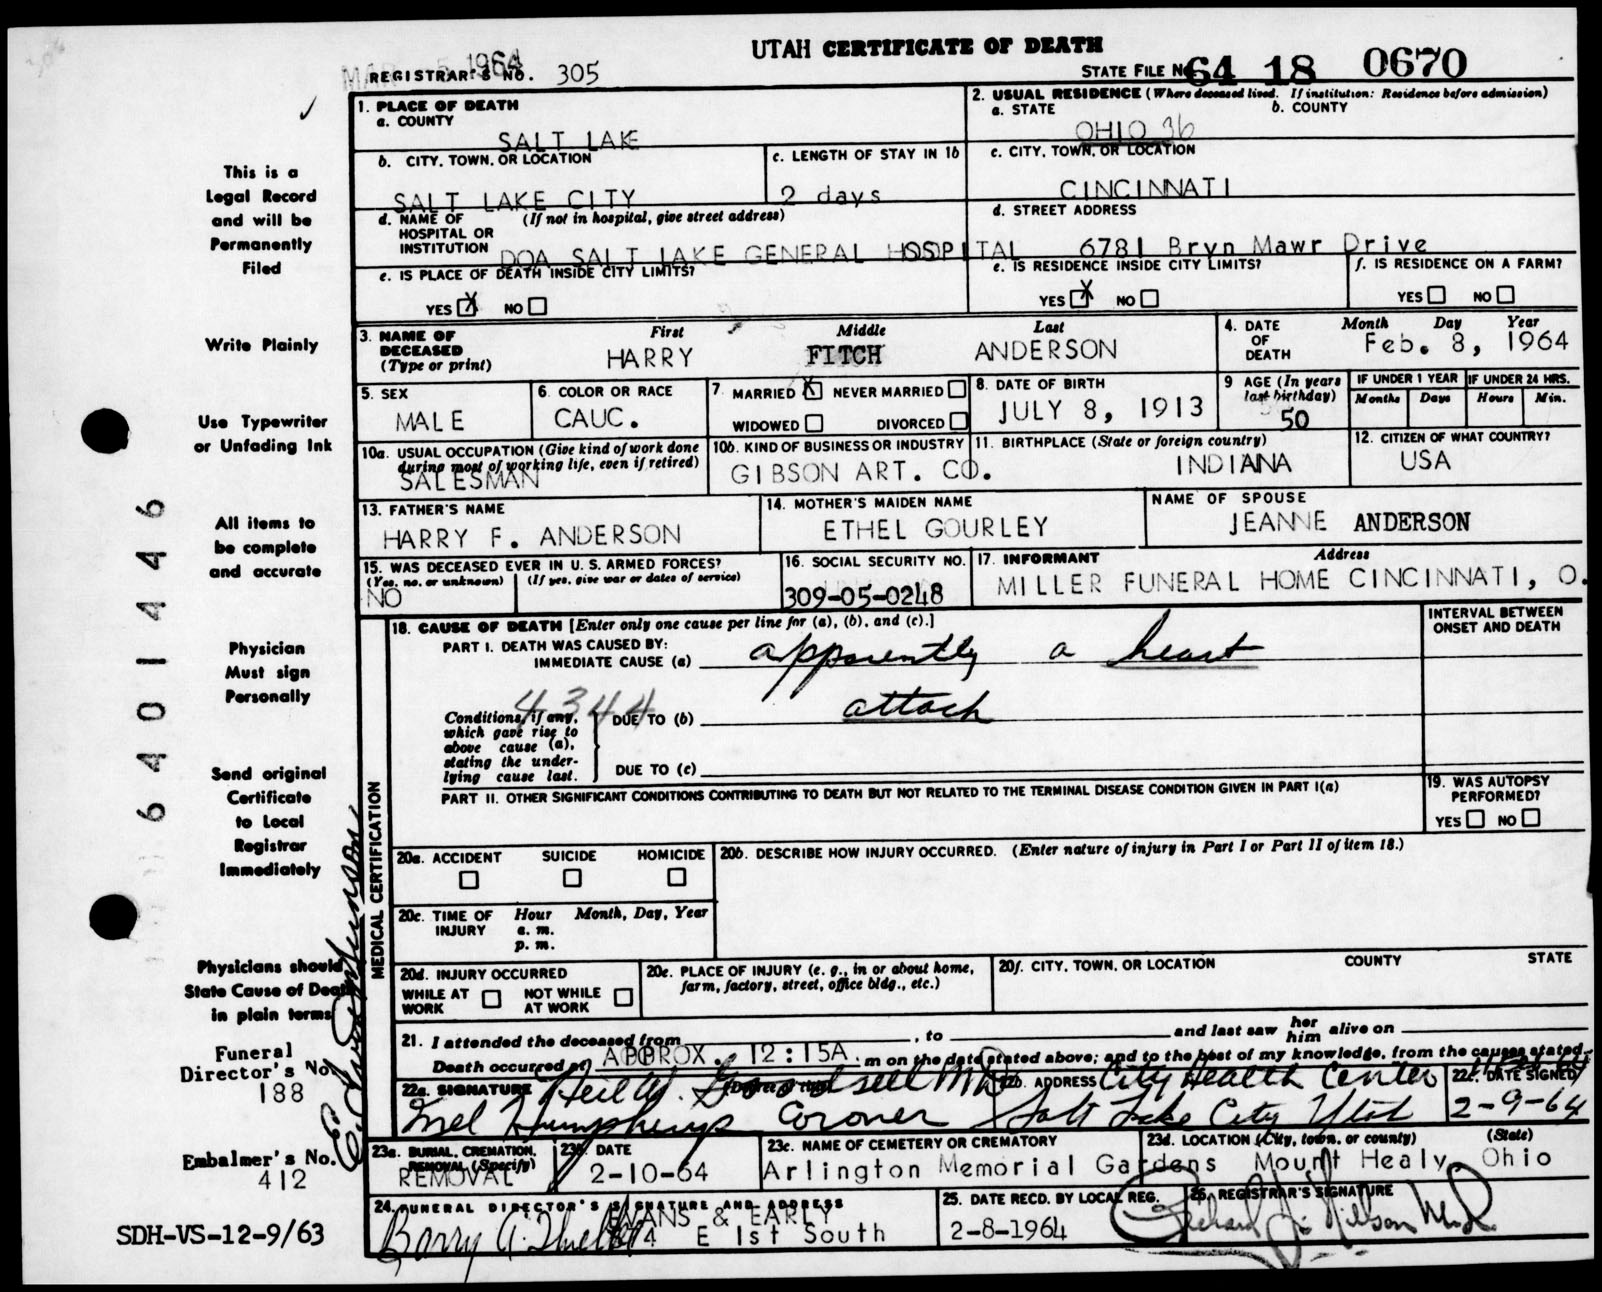 UTAH CERTIFICATE OF DEATH
MAR 5 1964
REGISTRAR'S NO. 305
STATE FILE No. 64 18 0670
1. PLACE OF DEATH
a. COUNTY
SALT LAKE
2. USUAL RESIDENCE (Where deceased lived. If institution: Residence before admission)
a. STATE b. COUNTY
OHIO 36
b. CITY, TOWN, OR LOCATION
SALT LAKE CITY
c. LENGTH OF STAY IN 1b
2 days
c. CITY, TOWN, OR LOCATION
CINCINNATI
d. NAME OF HOSPITAL OR INSTITUTION (If not in hospital, give street address)
DOA SALT LAKE GENERAL HOSPITAL
d. STREET ADDRESS
6781 Bryn Mawr Drive
e. IS PLACE OF DEATH INSIDE CITY LIMITS?
YES X NO
e. IS RESIDENCE INSIDE CITY LIMITS?
YES X NO
f. IS RESIDENCE ON A FARM?
YES NO
3. NAME OF DECEASED (Type or print)
First Middle Last
HARRY FITCH ANDERSON
4. DATE OF DEATH
Month Day Year
Feb. 8, 1964
5. SEX
MALE
6. COLOR OR RACE
CAUC.
7. MARRIED X NEVER MARRIED
WIDOWED DIVORCED
8. DATE OF BIRTH
JULY 8, 1913
9 AGE (In years last birthday)
50
IF UNDER 1 YEAR
Months Days
IF UNDER 24 HRS.
Hours Min.
10a. USUAL OCCUPATION (Give kind of work done during most of working life, even if retired)
SALESMAN
10b. KIND OF BUSINESS OR INDUSTRY
GIBSON ART. CO.
11. BIRTHPLACE (State or foreign country)
INDIANA
12. CITIZEN OF WHAT COUNTRY?
USA
13. FATHER'S NAME
HARRY F. ANDERSON
14. MOTHER'S MAIDEN NAME
ETHEL GOURLEY
NAME OF SPOUSE
JEANNE ANDERSON
15. WAS DECEASED EVER IN U. S. ARMED FORCES?
(Yes, no, or unknown) (If yes, give war or dates of service)
NO
16. SOCIAL SECURITY NO.
309-05-0248
17. INFORMANT Address
MILLER FUNERAL HOME CINCINNATI, O.
MEDICAL CERTIFICATION
18. CAUSE OF DEATH [Enter only one cause per line for (a), (b), and (c).]
INTERVAL BETWEEN ONSET AND DEATH
PART I. DEATH WAS CAUSED BY:
IMMEDIATE CAUSE (a) apparently a heart
4344
Conditions, if any, which gave rise to above cause (a), stating the underlying cause last.
DUE TO (b) attach
DUE TO (c)
PART II. OTHER SIGNIFICANT CONDITIONS CONTRIBUTING TO DEATH BUT NOT RELATED TO THE TERMINAL DISEASE CONDITION GIVEN IN PART I(a)
19. WAS AUTOPSY PERFORMED?
YES NO
20a. ACCIDENT SUICIDE HOMICIDE
20b. DESCRIBE HOW INJURY OCCURRED. (Enter nature of injury in Part I or Part II of item 18.)
20c. TIME OF INJURY
Hour Month, Day, Year
a. m.
p. m.
20d. INJURY OCCURRED
WHILE AT WORK NOT WHILE AT WORK
20e. PLACE OF INJURY (e. g., in or about home, farm, factory, street, office bldg., etc.)
20f. CITY, TOWN, OR LOCATION COUNTY STATE
21. I attended the deceased from , to and last saw her him alive on
Death occurred at APPROX. 12:15A. m on the date stated above; and to the best of my knowledge, from the causes stated.
22a. SIGNATURE
Mel Humpherys Coroner
22b. ADDRESS City Health Center
Salt Lake City Utah
22c. DATE SIGNED
2-9-64
23a. BURIAL, CREMATION, REMOVAL (Specify)
REMOVAL
23b. DATE
2-10-64
23c. NAME OF CEMETERY OR CREMATORY
Arlington Memorial Gardens
23d. LOCATION (City, town, or county) (State)
Mount Healy Ohio
24. FUNERAL DIRECTOR'S SIGNATURE AND ADDRESS
EVANS & EARLY
574 E 1st South
25. DATE RECD. BY LOCAL REG.
2-8-1964
26. REGISTRAR'S SIGNATURE
This is a
Legal Record
and will be
Permanently
Filed
Write Plainly
Use Typewriter
or Unfading Ink
All items to
be complete
and accurate
Physician
Must sign
Personally
Send original
Certificate
to Local
Registrar
Immediately
Physicians should
State Cause of Death
in plain terms
Funeral
Director's No.
188
Embalmer's No.
412
SDH-VS-12-9/63
6401446